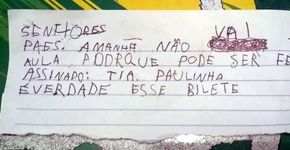 SENHORES VAI
PAES. AMANHÃ NÃO
AULA PODRQUE PODE SER FE
ASSINADO: TIA. PAULINHA
E VERDADE ESSE BILETE